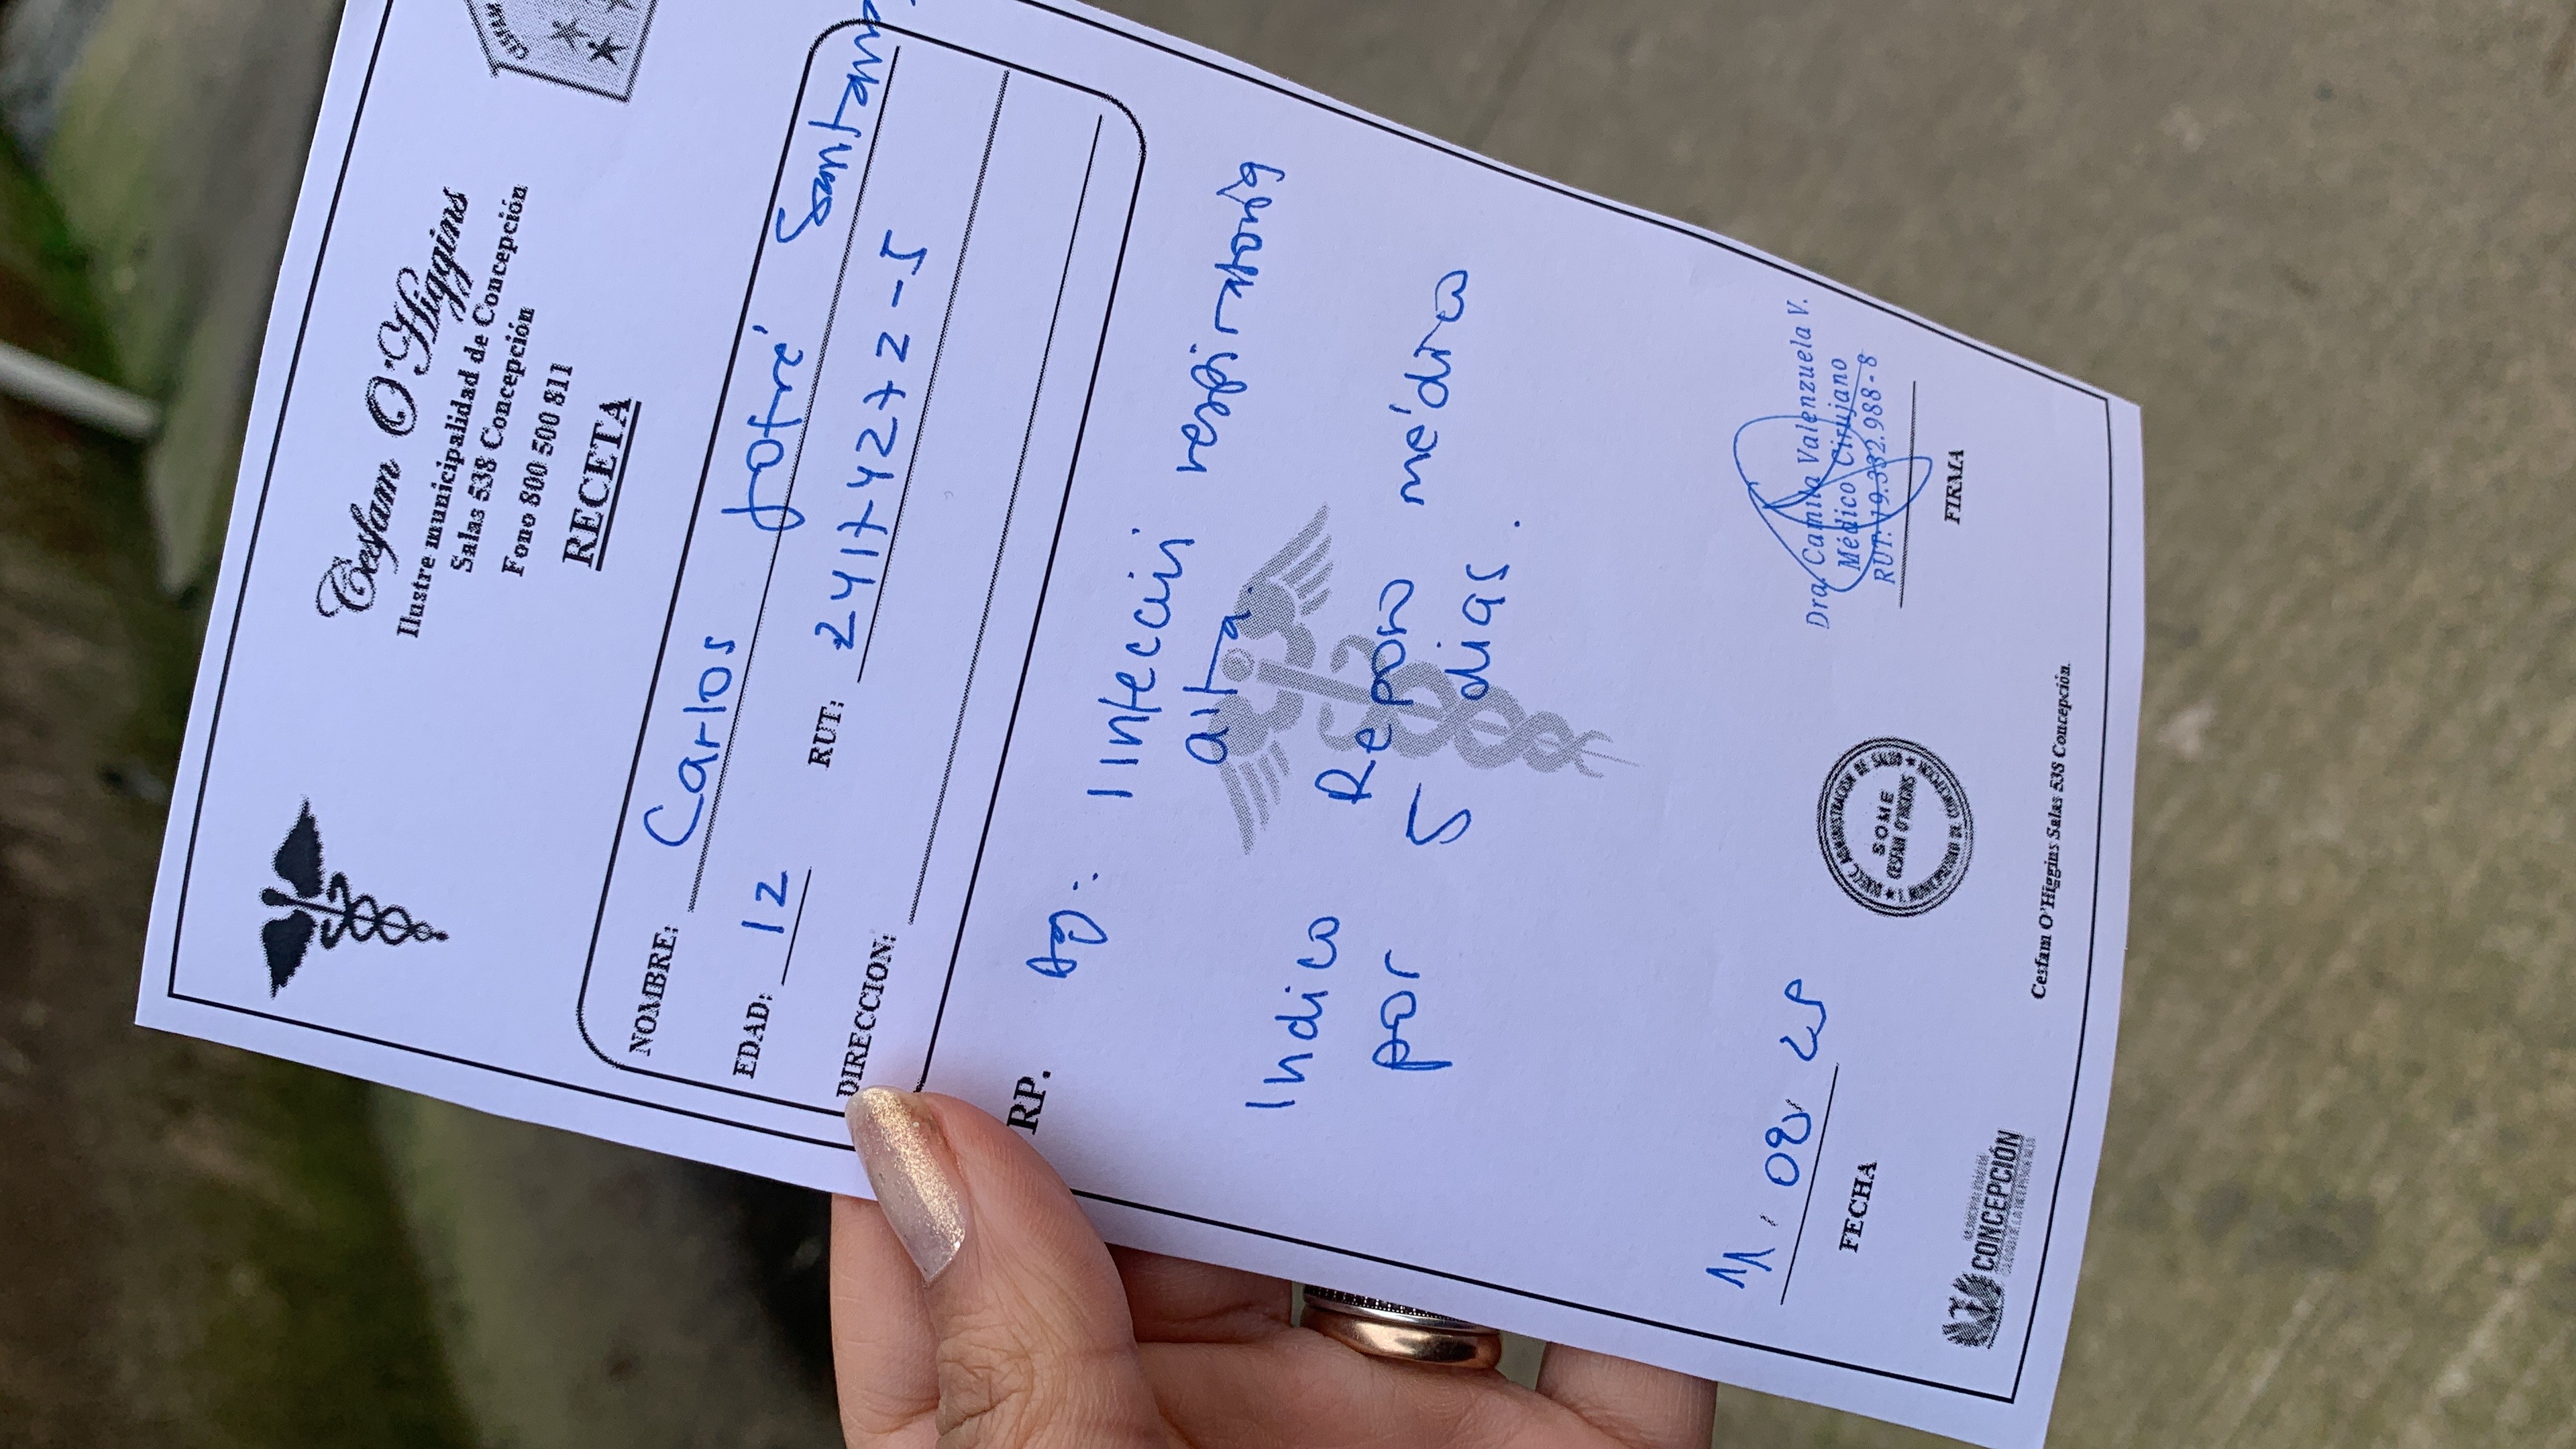 Cesfam O'Higgins
Ilustre municipalidad de Concepción
Salas 538 Concepción
Fono 800 500 811
RECETA
NOMBRE: Carlos Jofré
EDAD: 12 RUT: 24174272-5
DIRECCION:
RP.
Infección respiratoria
alta.
Indico Reposo médico
por 5 dias.
Dra. Camila Valenzuela V.
Médico Cirujano
RUT: 19.332.988-8
11.08 25
FECHA
FIRMA
SOME
CESFAM O'HIGGINS
CONCEPCIÓN
Cesfam O'Higgins Salas 538 Concepción.